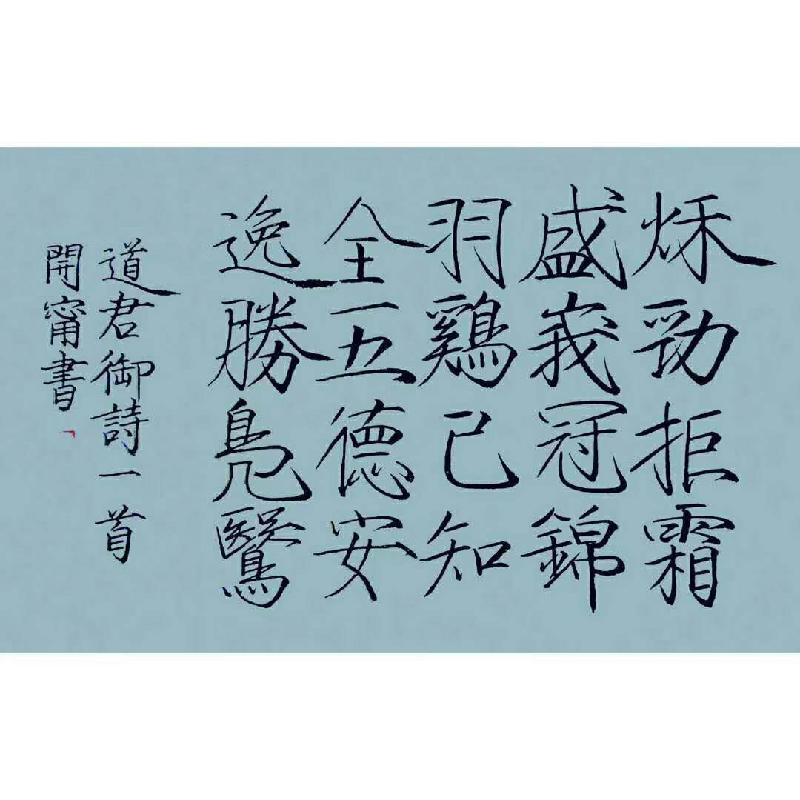 烁勁拒霜
盛峩冠錦
羽鷄已知
全五德安
逸勝鳧鷖
道君御詩一首
開甯書